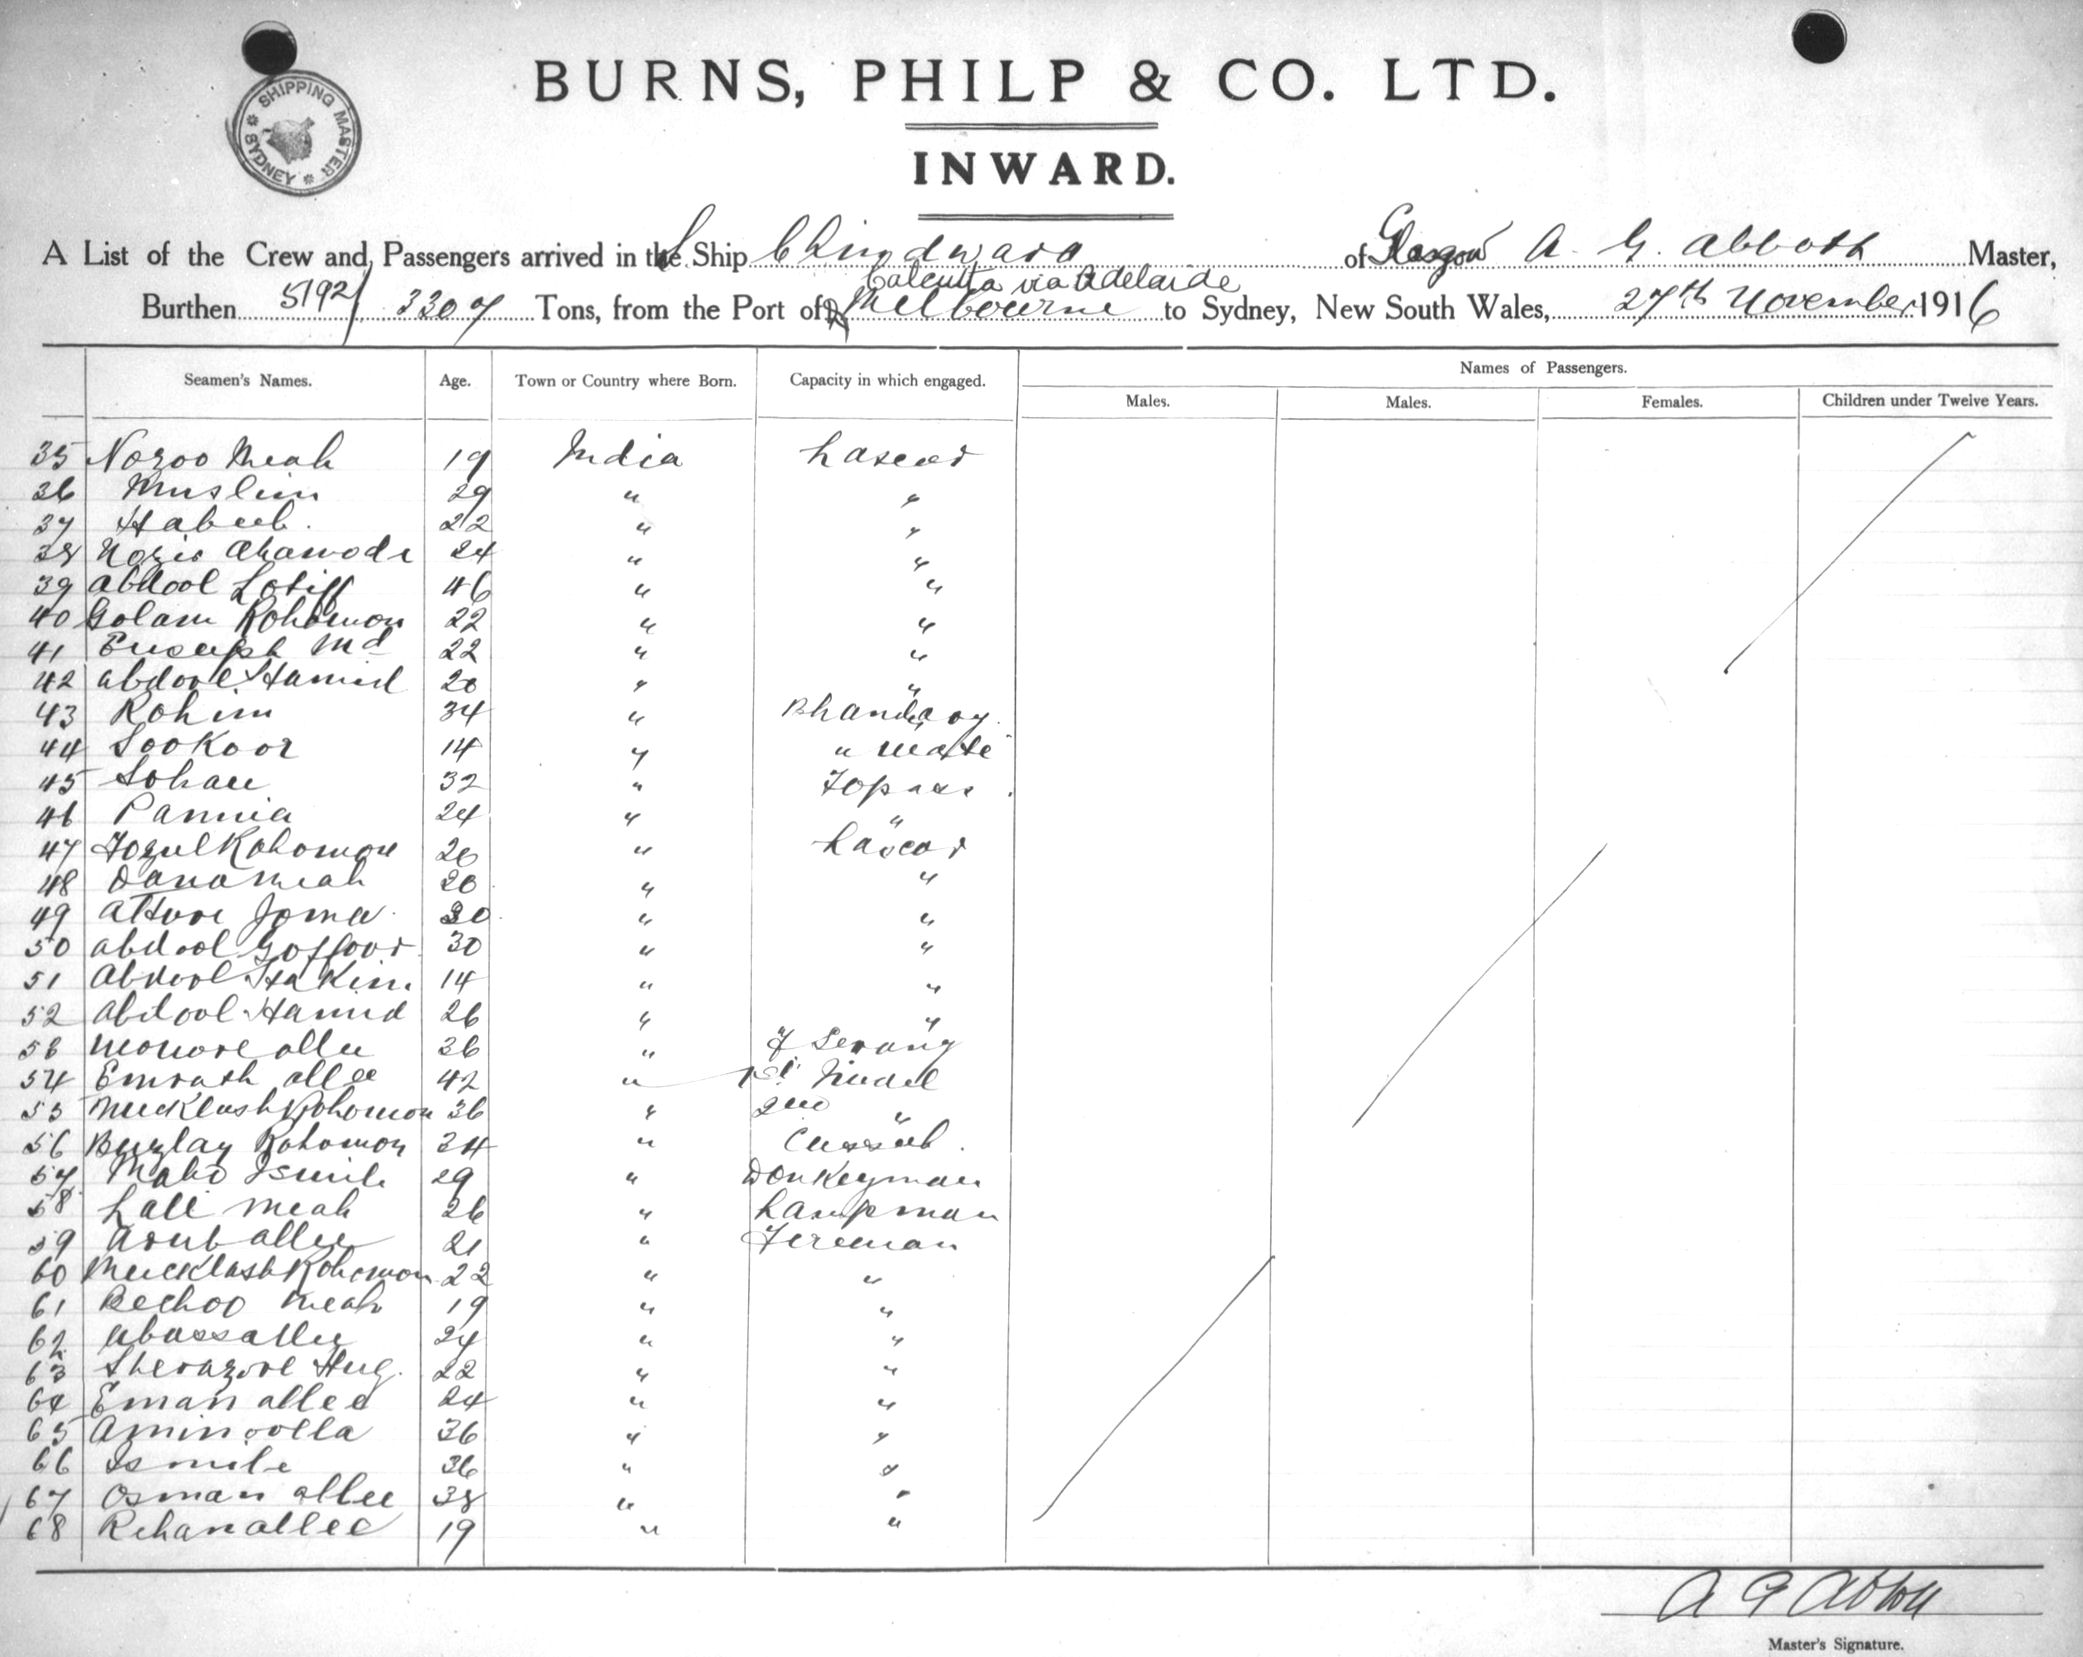 SHIPPING MASTER
* SYDNEY *
BURNS, PHILP & CO. LTD.
INWARD.
A List of the Crew and Passengers arrived in the S. Ship Chindwara of Glasgow A. G. Abbott Master,
Calcutta via Adelaide
Burthen 5192/3307 Tons, from the Port of & Melbourne to Sydney, New South Wales, 27th November 1916
Names of Passengers.
Seamen's Names. Age. Town or Country where Born. Capacity in which engaged. Males. Males. Females. Children under Twelve Years.
35 Nozoo Meah 19 India Lascar
36 Muslim 29 " "
37 Habeeb. 22 " "
38 Nozir Ahamode 24 " "
39 Abdool Lotiff 46 " "
40 Golam Rohomon 22 " "
41 Eusuph Md 22 " "
42 Abdool Hamid 20 " "
43 Rohim 34 " Bhandary.
44 Sookoor 14 " " Mate
45 Sohan 32 " Topass.
46 Pannia 24 " "
47 Fozul Rohomon 20 " Lascar
48 Dana Meah 20 " "
49 Attore Joma 30 " "
50 Abdool Goffoor 30 " "
51 Abdool Hakim. 14 " "
52 Abdool Hamid 26 " "
53 Monore Allee 36 " F Serang
54 Emrath Allee 42 " 1st Tindal
55 Mucklash Rohomon 36 " 2nd "
56 Buzlay Rohomon 34 " Cussab.
57 Maho Ismile 29 " Donkeyman
58 Lall Meah 26 " Lampman
59 Asub Allee 21 " Fireman
60 Mucklash Rohomon 22 " "
61 Bechoo Meah 19 " "
62 Abass Allee 24 " "
63 Sherazore Huq. 22 " "
64 Eman Allee 24 " "
65 Aminoolla 36 " "
66 Ismile 36 " "
67 Osman Allee 38 " "
68 Rehan Allee 19 " "
A G Abbott
Master's Signature.